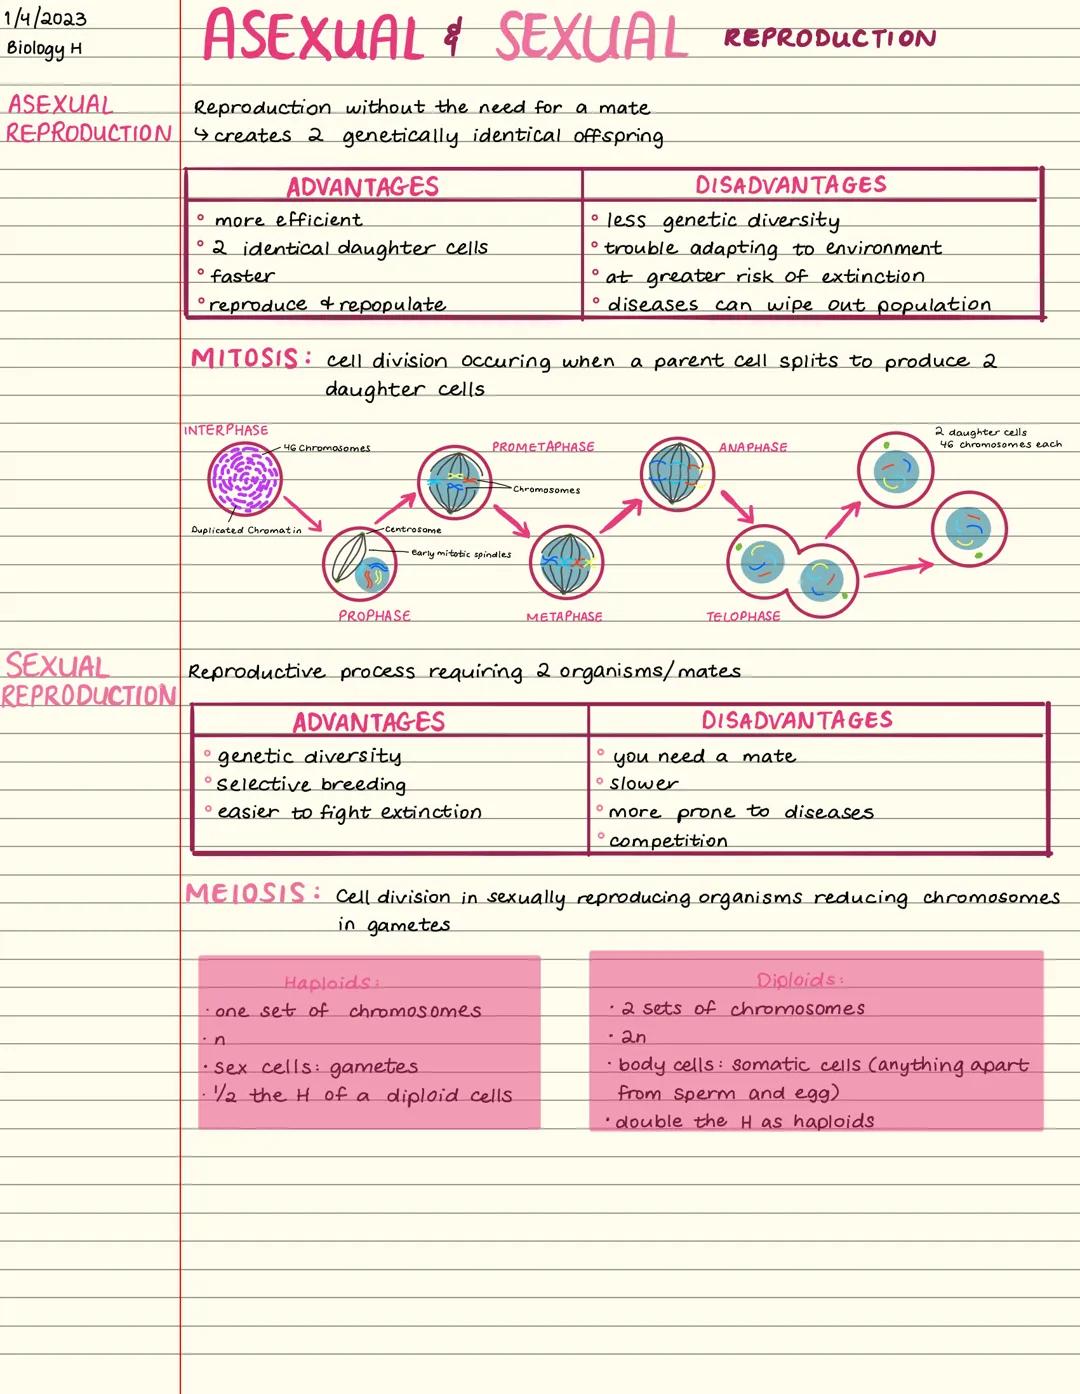 1/4/2023
Biology H
ASEXUAL & SEXUAL REPRODUCTION
ASEXUAL
REPRODUCTION
Reproduction without the need for a mate
↳ creates 2 genetically identical offspring
ADVANTAGES
° more efficient
° 2 identical daughter cells
° faster
° reproduce & repopulate
DISADVANTAGES
° less genetic diversity
° trouble adapting to environment
° at greater risk of extinction
° diseases can wipe out population
MITOSIS: cell division occuring when a parent cell splits to produce 2
daughter cells
INTERPHASE
46 Chromosomes
Duplicated Chromatin
PROMETAPHASE
Chromosomes
ANAPHASE
2 daughter cells
46 chromosomes each
Centrosome
early mitotic spindles
PROPHASE
METAPHASE
TELOPHASE
SEXUAL
REPRODUCTION
Reproductive process requiring 2 organisms/mates
ADVANTAGES
° genetic diversity
° selective breeding
° easier to fight extinction
DISADVANTAGES
° you need a mate
° slower
° more prone to diseases
° competition
MEIOSIS: Cell division in sexually reproducing organisms reducing chromosomes
in gametes
Haploids:
· one set of chromosomes
· n
· sex cells: gametes
· 1/2 the H of a diploid cells
Diploids:
· 2 sets of chromosomes
· 2n
· body cells: somatic cells (anything apart
from sperm and egg)
· double the H as haploids